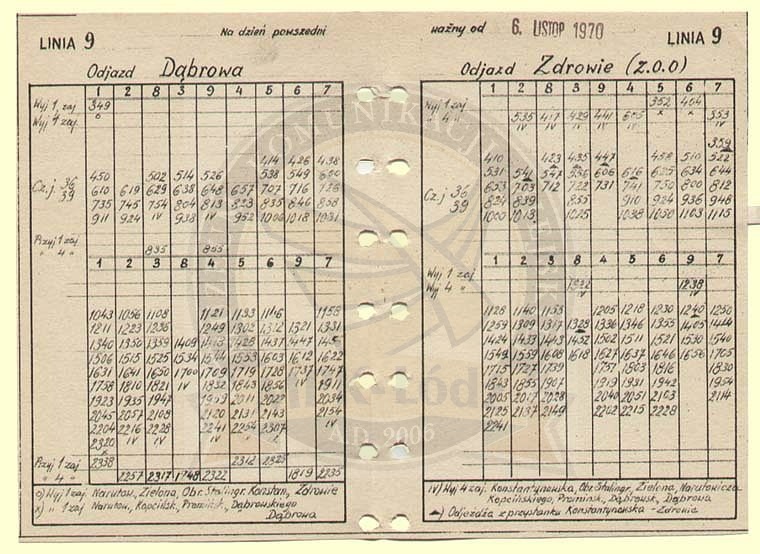 LINIA 9
Na dzień powszedni
Odjazd Dąbrowa
1 2 8 3 9 4 5 6 7
Wyj 1 zaj. 349
Wyj 4 zaj.
414 426 438
450 502 514 526 538 549 600
Cz.j 36 610 619 629 638 648 657 707 716 726
39 735 745 754 804 813 823 835 846 858
911 924 IV 938 IV 952 1006 1018 1031
Przyj 1 zaj
" 4 " 835 855
1 2 3 8 4 5 6 9 7
1043 1056 1108 1121 1133 1146 1158
1211 1223 1236 1249 1302 1312 1321 1331
1340 1350 1359 1409 1428 1437 1447
1506 1515 1525 1534 1544 1553 1603 1612 1622
1631 1641 1650 1700 1709 1719 1728 1737 1747
1758 1810 1821 IV 1832 1843 1854 IV 1911
1923 1935 1947 2011 2034
2045 2057 2108 2120 2131 2143 2154
2204 2216 2228 2241 2254 2307 IV
2320
Przyj 1 zaj 2338 2312 2325
" 4 " 2257 2317 1748 2322 1819 2235
o) Wyj 1 zaj. Narutow., Zielona, Obr. Stalingr. Konstan., Zdrowie
x) " 1 zaj Narutow, Kopcińsk, Promińsk, Dąbrowskiego
Dąbrowa
ważny od 6. LISTOP 1970
LINIA 9
Odjazd Zdrowie (Z.O.O)
1 2 8 3 9 4 5 6 7
Wyj 1 zaj 352 404
" 4 " 535 417 429 441 605 353
359
410 423 435 447 458 510 522
531 541 547 556 606 616 625 634 644
Cz.j 36 653 703 712 722 731 741 750 800 812
39 824 839 855 910 924 936 948
1000 1013 1025 1038 1050 1103 1115
1 2 3 8 9 4 5 6 7
Wyj 1 zaj
Wyj 4 " 1238
1128 1140 1153 1205 1218 1230 1240 1250
1259 1309 1317 1328 1336 1346 1355 1405 1414
1424 1433 1443 1452 1502 1511 1521 1530 1540
1549 1559 1608 1618 1627 1637 1646 1656 1705
1715 1727 1739 1751 1803 1816 1830
1843 1855 1907 1919 1931 1942 1954
2005 2017 2028 2040 2051 2103 2114
2125 2137 2149 2202 2215 2228
2241
IV) Wyj 4 zaj. Konstantynowska, Obr. Stalingr, Zielona, Narutowicza
Kopcińskiego, Promińsk., Dąbrowsk., Dąbrowa
▲) Odjeżdża z przystanku Konstantynowska - Zdrowie
KOMUNIKACJI
A.D. 2006